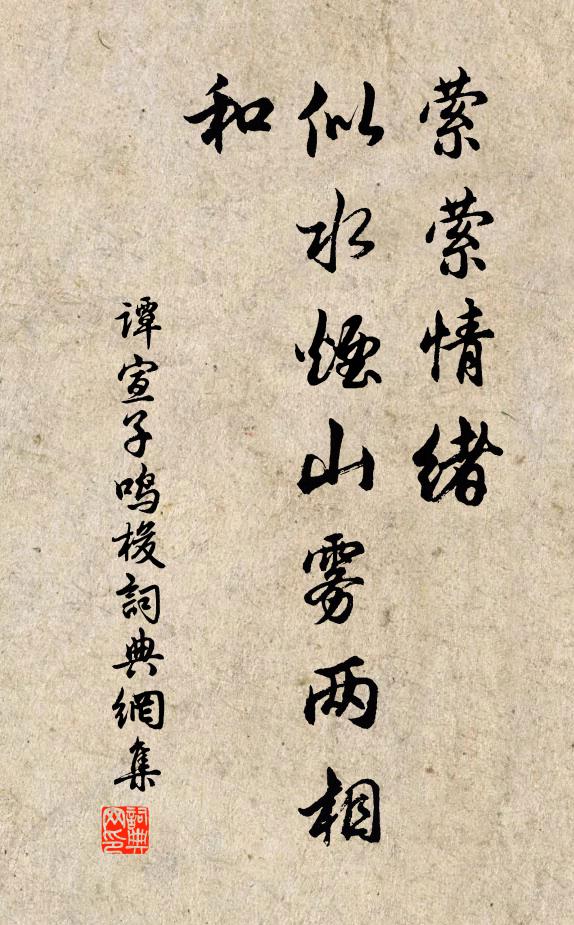 萦萦情绪
似水煙山雾两相
和
谭宣子鸣梭詞典網集
詞典
网印